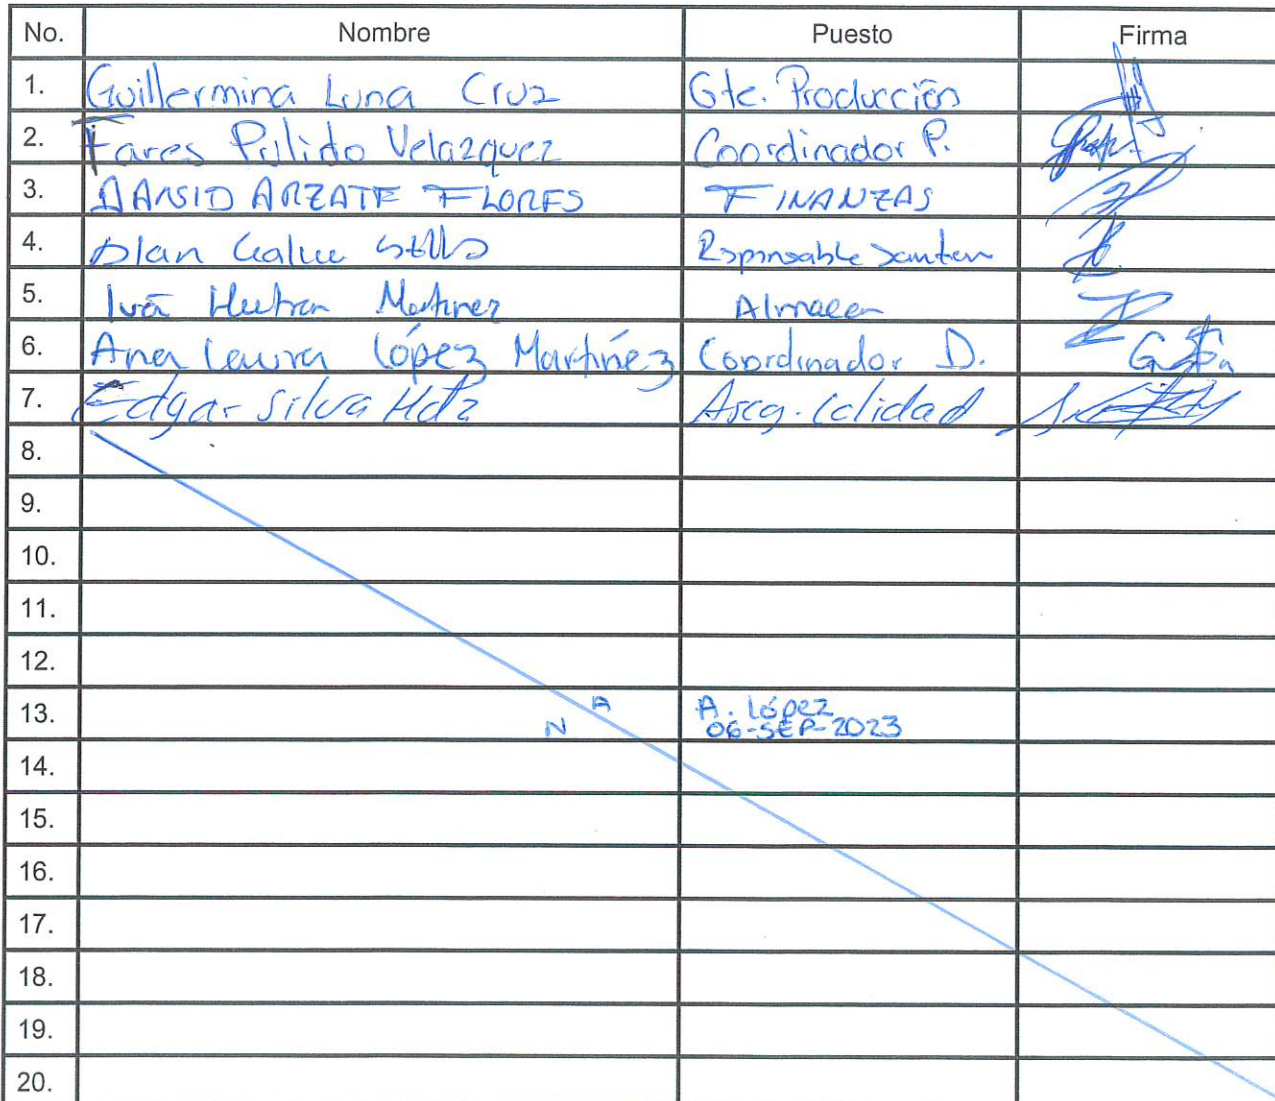 No. Nombre Puesto Firma
1. Guillermina Luna Cruz Gte. Producción
2. Fares Pulido Velazquez Coordinador P.
3. ARZATE FLORES FINANZAS
4. Responsable
5. Almacen
6. Ana Laura López Martínez Coordinador D.
7. Edgar Silva Hdz Aseg. Calidad
8.
9.
10.
11.
12.
13. N A A. López
06-SEP-2023
14.
15.
16.
17.
18.
19.
20.